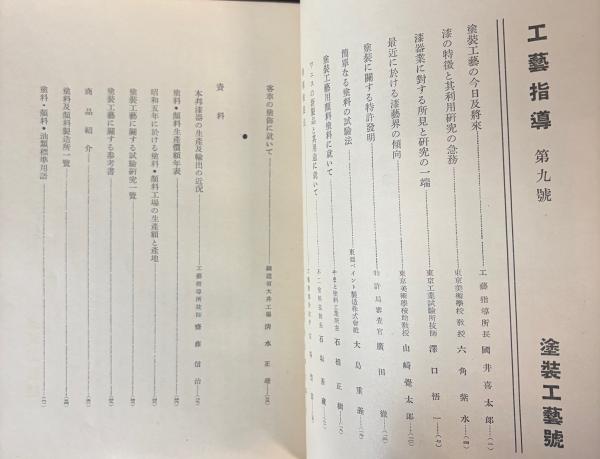 工藝指導 第九號 塗裝工藝號
塗裝工藝の今日及將來 工藝指導所長 國井喜太郎 (一)
漆の特徴と其利用研究の急務 東京美術學校教授 六角紫水
漆器業に對する所見と研究の一端 東京工業試驗所技師 澤口悟一
最近に於ける漆藝界の傾向 東京美術學校助教授 山崎覺太郎
塗裝に關する特許發明 特許局審査官 廣田徹
簡單なる塗料の試驗法 東亞ペイント製造株式會社 大島重義
塗裝工藝用顔料塗料に就いて
ワニスの新製品と其用途に就いて
客車の塗飾に就いて 鐵道省大井工場 清水正雄
資料
本邦漆器の生産及輸出の近況 工藝指導所技師 齋藤信治
塗料・顔料生産價額年表
昭和五年に於ける塗料・顔料工場の生産額と産地
塗裝工藝に關する試驗研究一覽
塗裝工藝に關する參考書
商品紹介
塗料及顔料製造所一覽
塗料・顔料・油類標準用語